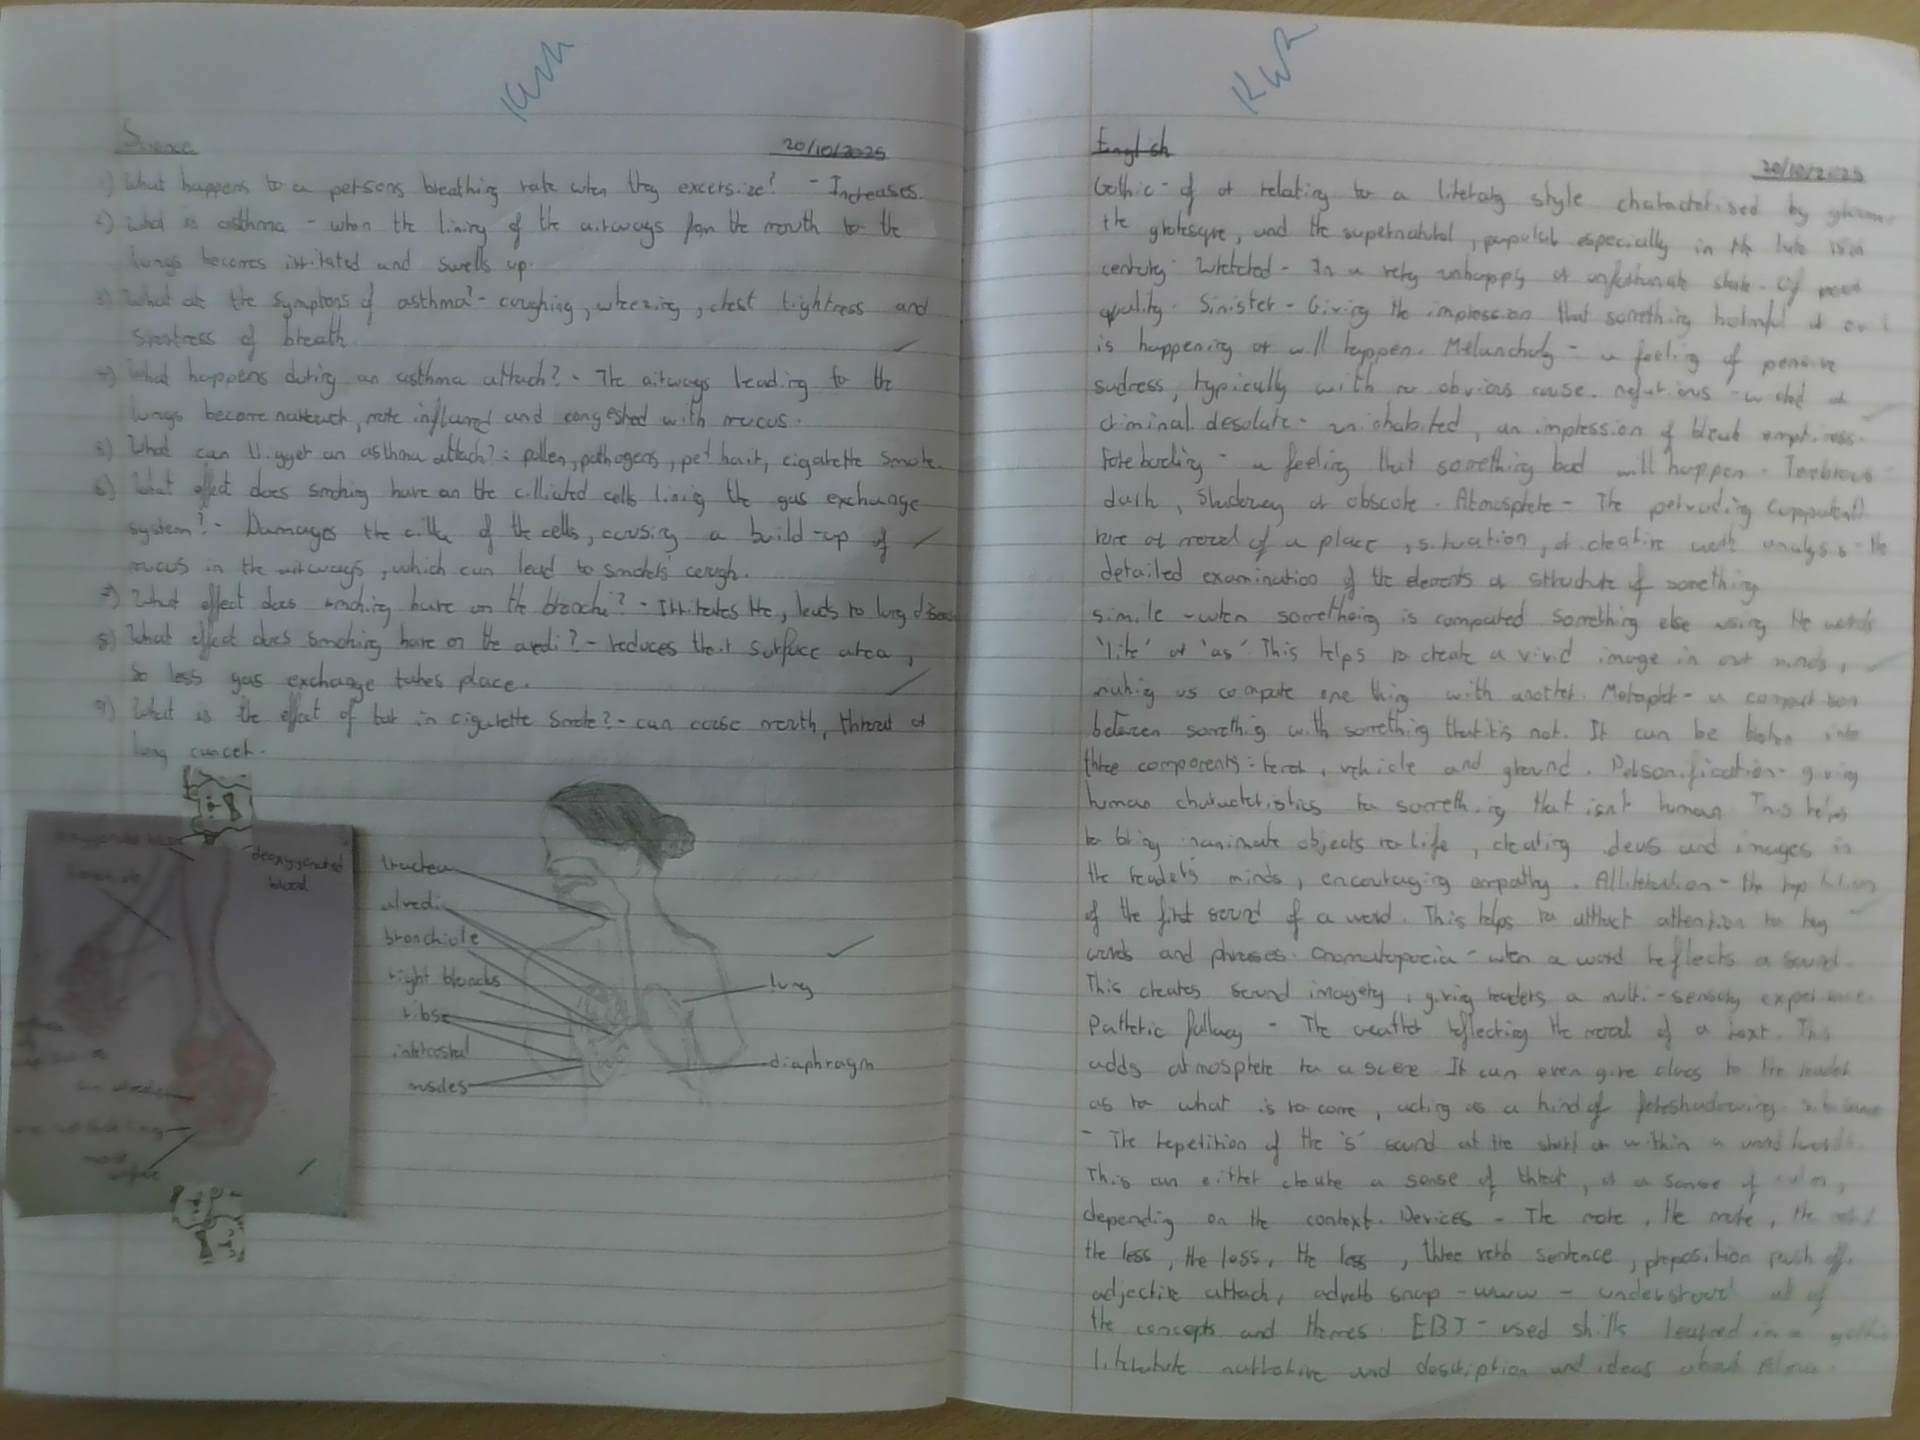 Science
20/10/2025
1) What happens to a persons breathing rate when they excersize? - Increases.
2) What is asthma - when the lining of the airways from the mouth to the
lungs becomes irritated and swells up.
3) What are the symptoms of asthma? - coughing, wheezing, chest tightness and
shortness of breath.
4) What happens during an asthma attack? - The airways leading to the
lungs become narrower, more inflamed and congested with mucus.
5) What can trigger an asthma attack? : pollen, pathogens, pet hair, cigarette smoke.
6) What effect does smoking have on the cilliated cells lining the gas exchange
system? - Damages the cilia of the cells, causing a build-up of
mucus in the airways, which can lead to smokers cough.
7) What effect does smoking have on the bronchi? - Irritates the, leads to lung disease
8) What effect does smoking have on the aveoli? - reduces their surface area,
so less gas exchange takes place.
9) What is the effect of tar in cigarette smoke? - can cause mouth, throat or
lung cancer.
deoxygenated
blood
trachea
alveoli
bronchiole
right bronchs
ribs
intercostal
muscles
lung
diaphragm
KWR
English
20/10/2025
Gothic - of or relating to a literary style characterised by gloom
the grotesque, and the supernatural, popular especially in the late 18th
century. Wretched - In a very unhappy or unfortunate state. Of poor
quality. Sinister - Giving the impression that something harmful or evil
is happening or will happen. Melancholy - a feeling of pensive
sadness, typically with no obvious cause. nefarious - wicked or
criminal. desolate - uninhabited, an impression of bleak emptiness.
Foreboding - a feeling that something bad will happen. Tenebrous -
dark, shadowy or obscure. Atmosphere - The pervading
tone or mood of a place, situation, or creative work analysis - the
detailed examination of the elements or structure of something
simile - when something is compared something else using the words
'like' or 'as' This helps to create a vivid image in our minds,
making us compare one thing with another. Metapher - a comparison
between something with something that its not. It can be broken into
three components: tenor, vehicle and ground. Personification - giving
human characteristics to something that isn't human. This helps
to bring inanimate objects to life, creating ideas and images in
the readers minds, encouraging empathy. Alliteration - the repitition
of the first sound of a word. This helps to attract attention to key
words and phrases. Onomatopoeia - when a word reflects a sound.
This creates sound imagery, giving readers a multi-sensory experience.
Pathetic fallacy - The weather reflecting the mood of a text. This
adds atmosphere to a scene It can even give clues to the reader
as to what is to come, acting as a kind of foreshadowing. sibilance
- The repetition of the 's' sound at the start or within a word/words
This can either create a sense of threat, or a sense of calm,
depending on the context. Devices - The more, the more, the more /
the less, the less, the less, three verb sentence, preposition push off,
adjective attack, adverb snap - www - understood all of
the concepts and themes. EBI - used skills learned in a gothic
literature narrative and description and ideas about